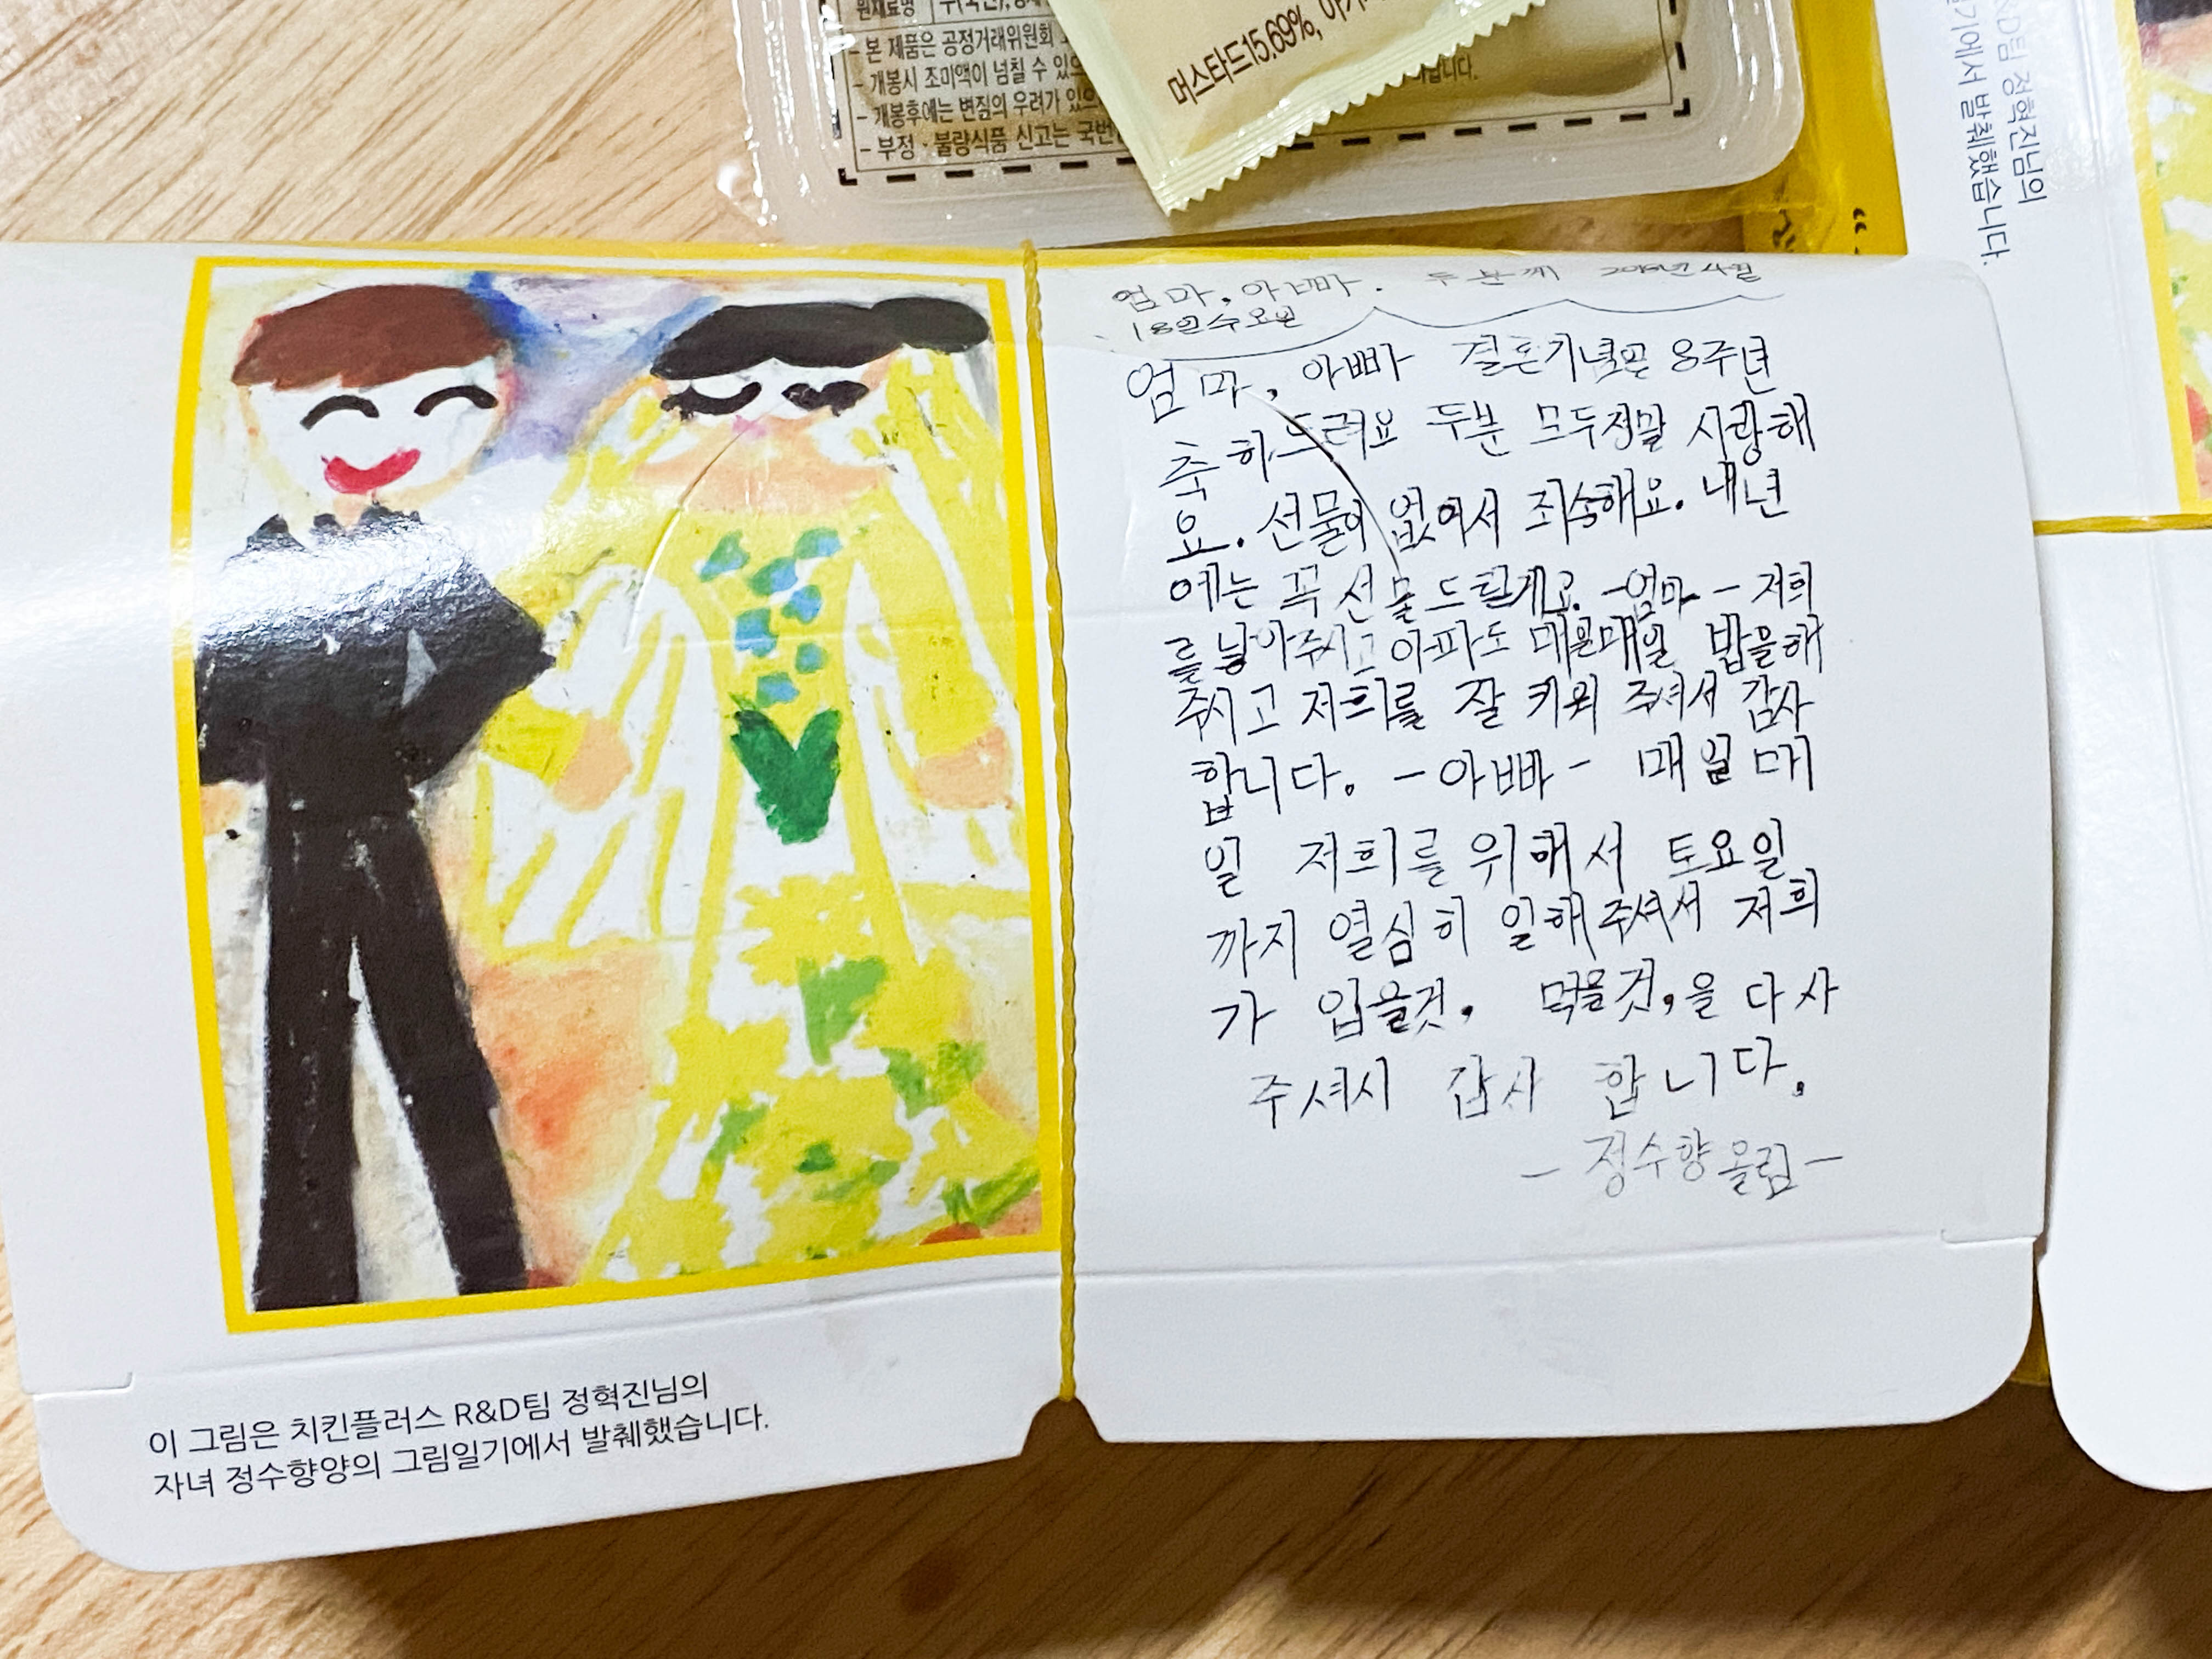 원재료명
- 본 제품은 공정거래위원회
- 개봉시 조미액이 넘칠 수 있
- 개봉후에는 변질의 우려가 있
- 부정·불량식품 신고는 국번
머스타드15.69%,
&D팀 정혁진님의
기에서 발췌했습니다.
엄마, 아빠. 두분께 4월
18일수요일
엄마, 아빠 결혼기념일 8주년
축하드려요 두분 모두정말 사랑해
요. 선물이 없어서 죄송해요. 내년
에는 꼭 선물드릴게요. -엄마- 저희
를 낳아주시고 아파도 매일매일 밥을해
주시고 저희를 잘 키워 주셔서 감사
합니다. -아빠- 매일매
일 저희를 위해서 토요일
까지 열심히 일해주셔서 저희
가 입을것, 먹을것,을 다사
주셔서 감사 합니다.
- 정수향올림 -
이 그림은 치킨플러스 R&D팀 정혁진님의
자녀 정수향양의 그림일기에서 발췌했습니다.